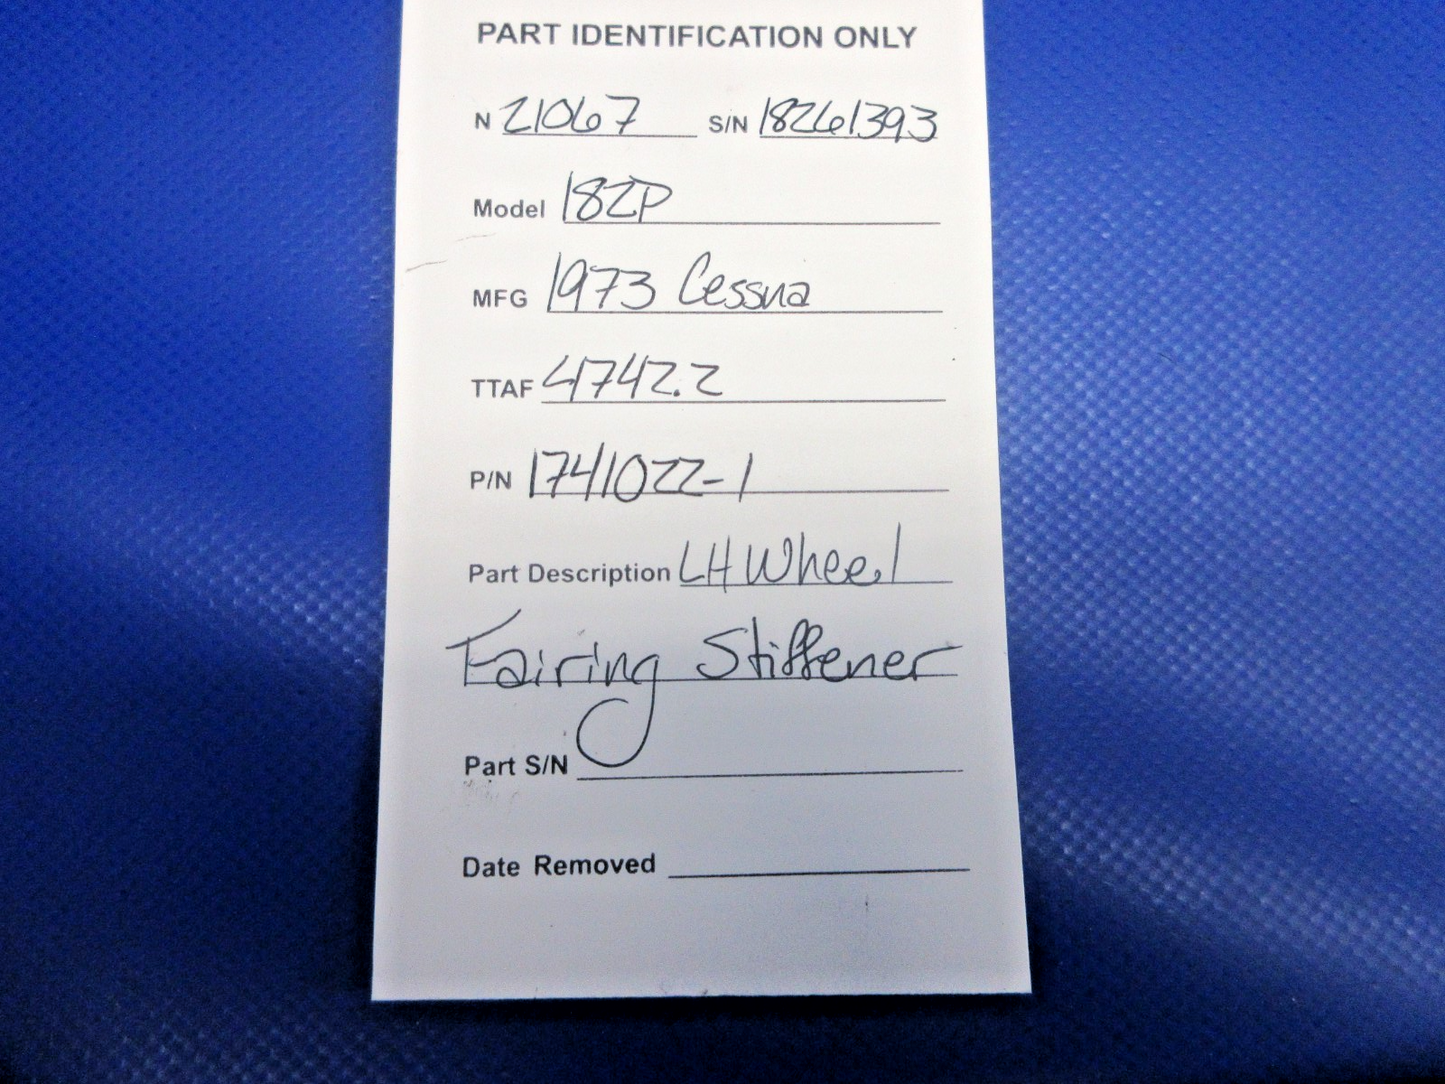 PART IDENTIFICATION ONLY
N 21067 S/N 18261393
Model 182P
MFG 1973 Cessna
TTAF 4742.2
P/N 1741022-1
Part Description LH Wheel
Fairing Stiffener
Part S/N
Date Removed